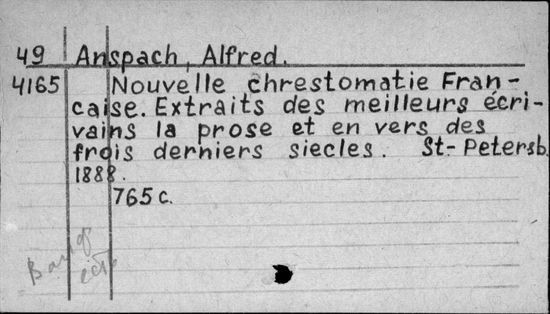 49 Anspach, Alfred.
4165 Nouvelle chrestomatie Fran-
caise. Extraits des meilleurs écri-
vains la prose et en vers des
frois derniers siecles. St-Petersb.
1888.
765 c.
есть